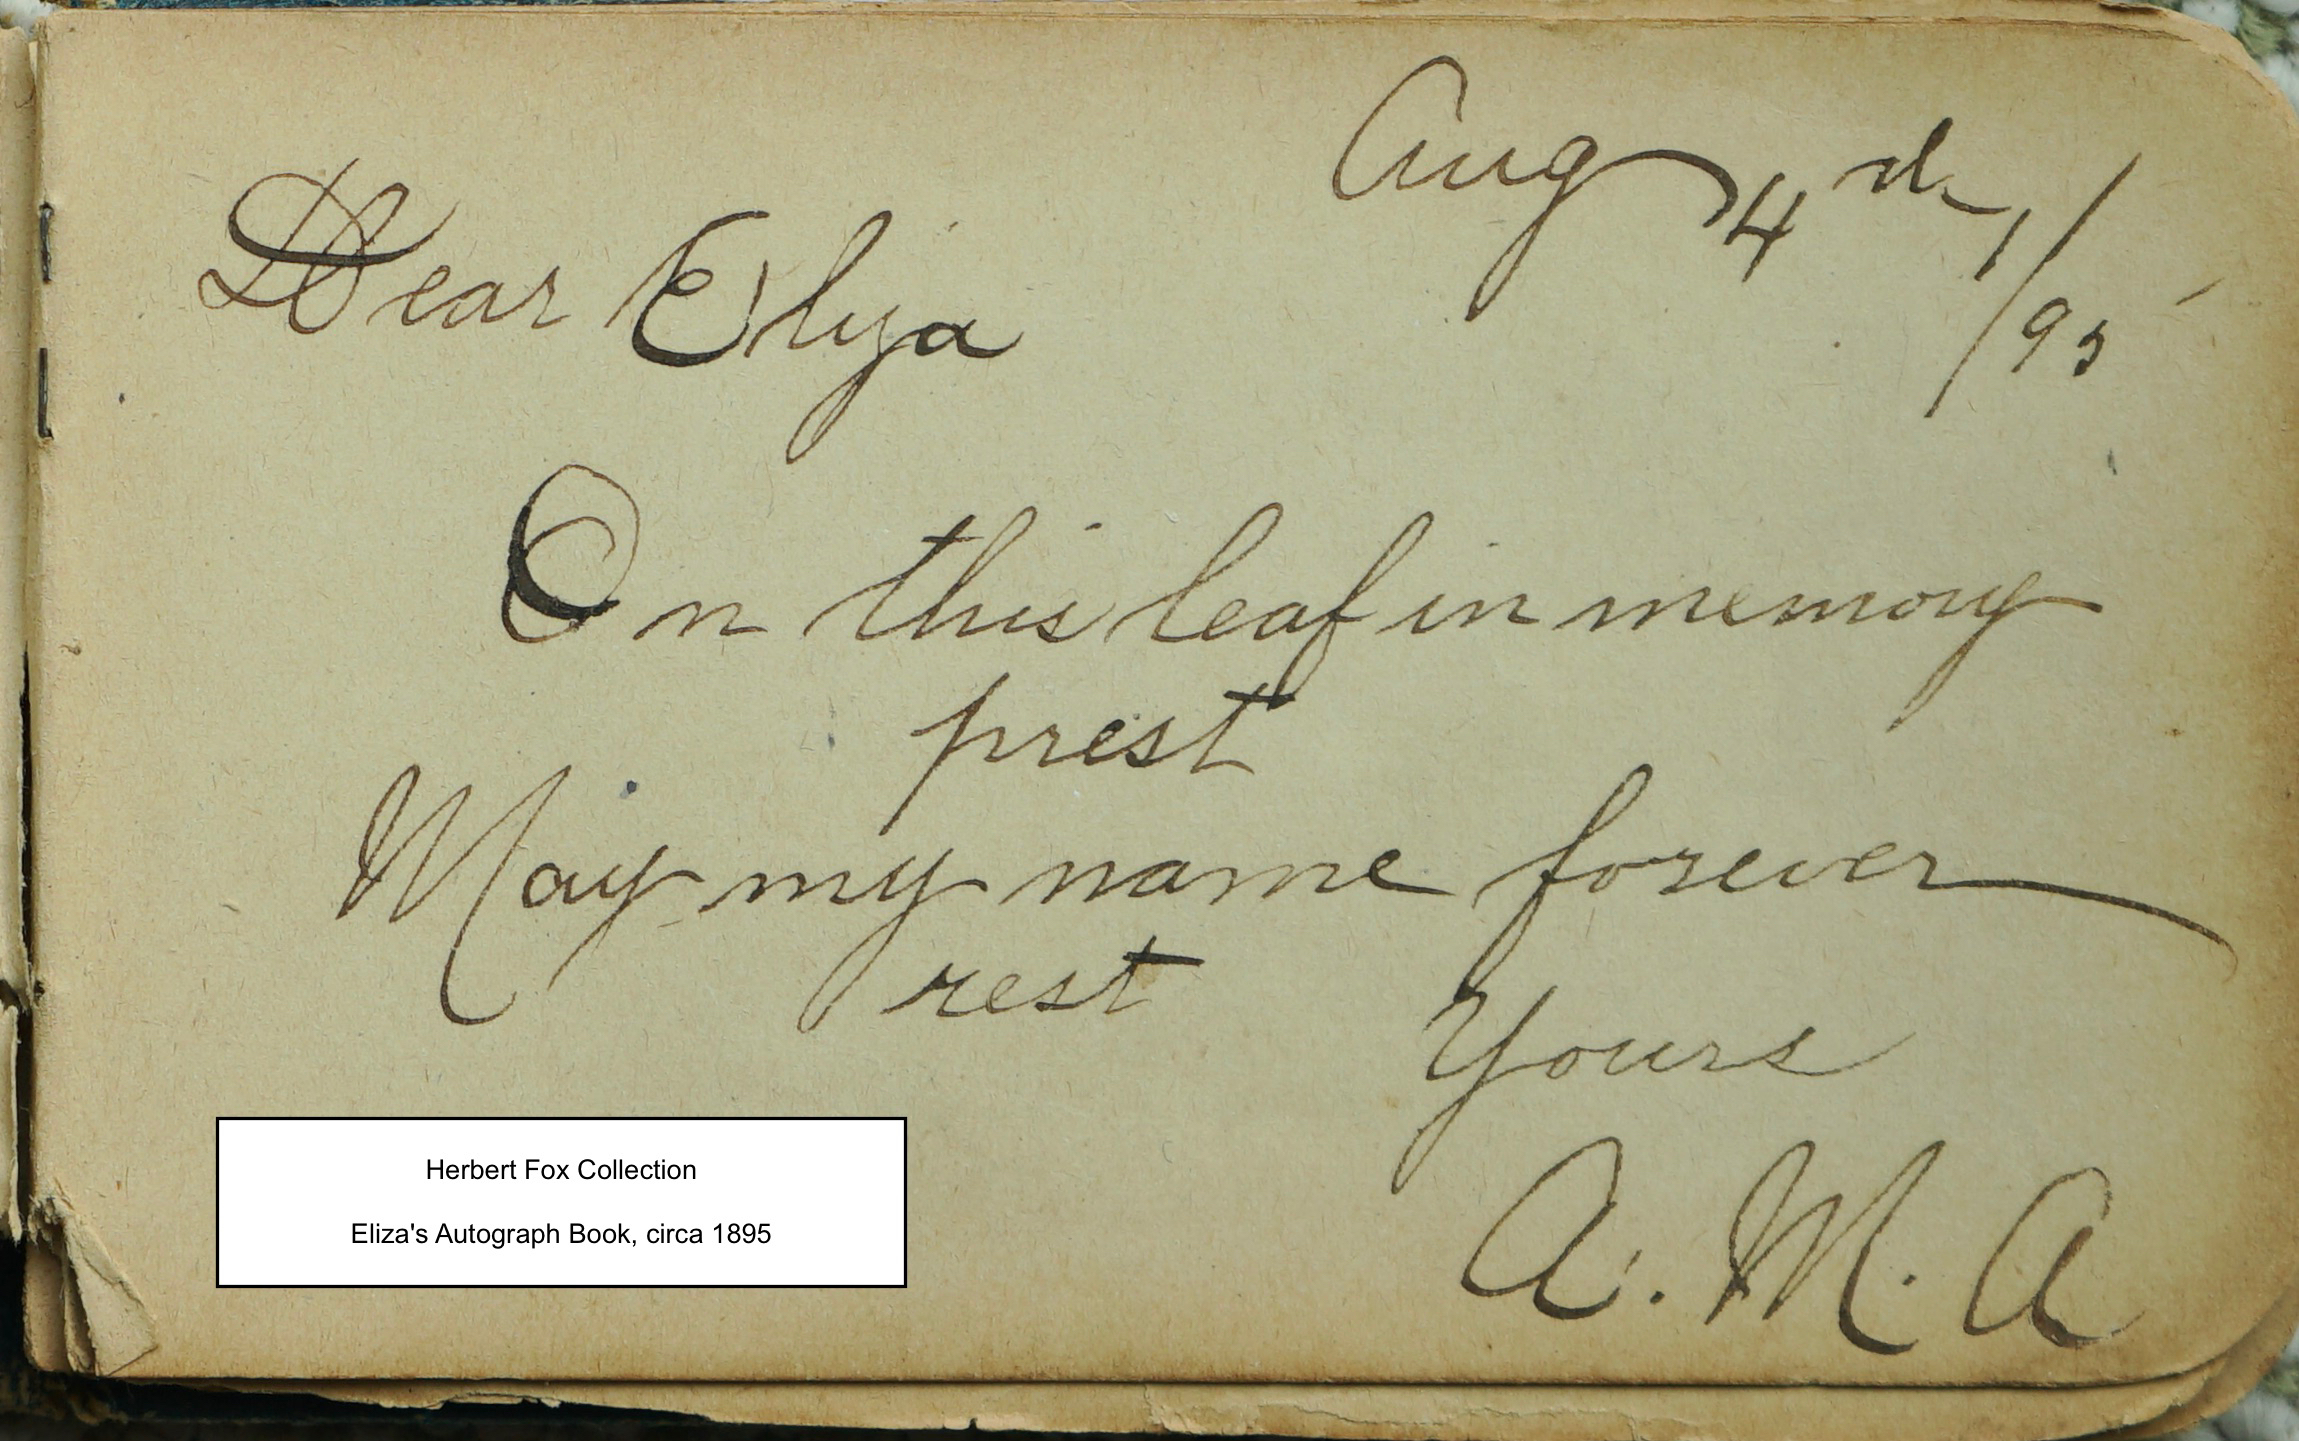 Aug 4th, /95
Dear Eliza
On this leaf in memory
prest
May my name forever
rest
Yours
A. M. A
Herbert Fox Collection
Eliza's Autograph Book, circa 1895